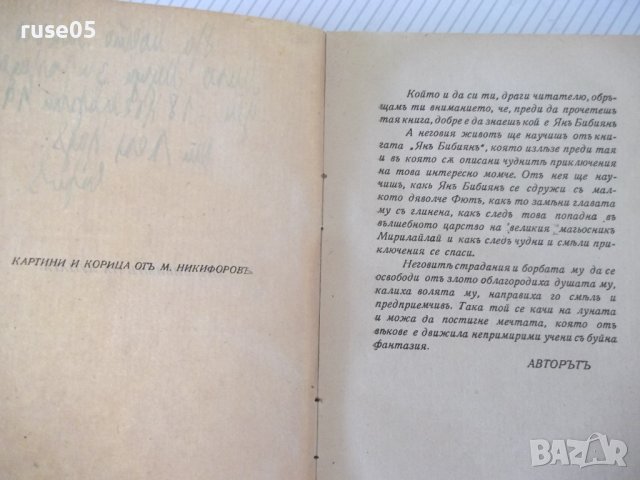 ruse05
КАРТИНИ И КОРИЦА ОТЪ М. НИКИФОРОВЪ.
Който и да си ти, драги читателю, обръ-
щамъ ти вниманието, че, преди да прочетешъ
тая книга, добре е да знаешъ кой е Янъ Бибиянъ
А неговия животъ ще научишъ отъ кни-
гата „Янъ Бибиянъ“, която излѣзе преди тая
и въ която сѫ описани чуднитѣ приключения
на това интересно момче. Отъ нея ще на-
учишъ, какъ Янъ Бибиянъ се сдружи съ мал-
кото дяволче Фютъ, какъ то замѣни главата
му съ глинена, какъ следъ това попадна въ
вълшебното царство на великия магьосник
Мирилайлай и какъ следъ чудни и смѣли при-
ключения се спаси.
Неговитѣ страдания и борбата му да се
освободи отъ злото облагородиха душата му,
калиха волята му, направиха го смѣлъ и
предприемчивъ. Така той се качи на луната
и можа да постигне мечтата, която отъ
вѣкове е движила непримирими учени съ буйна
фантазия.
АВТОРЪТЪ
BAZAR
bg